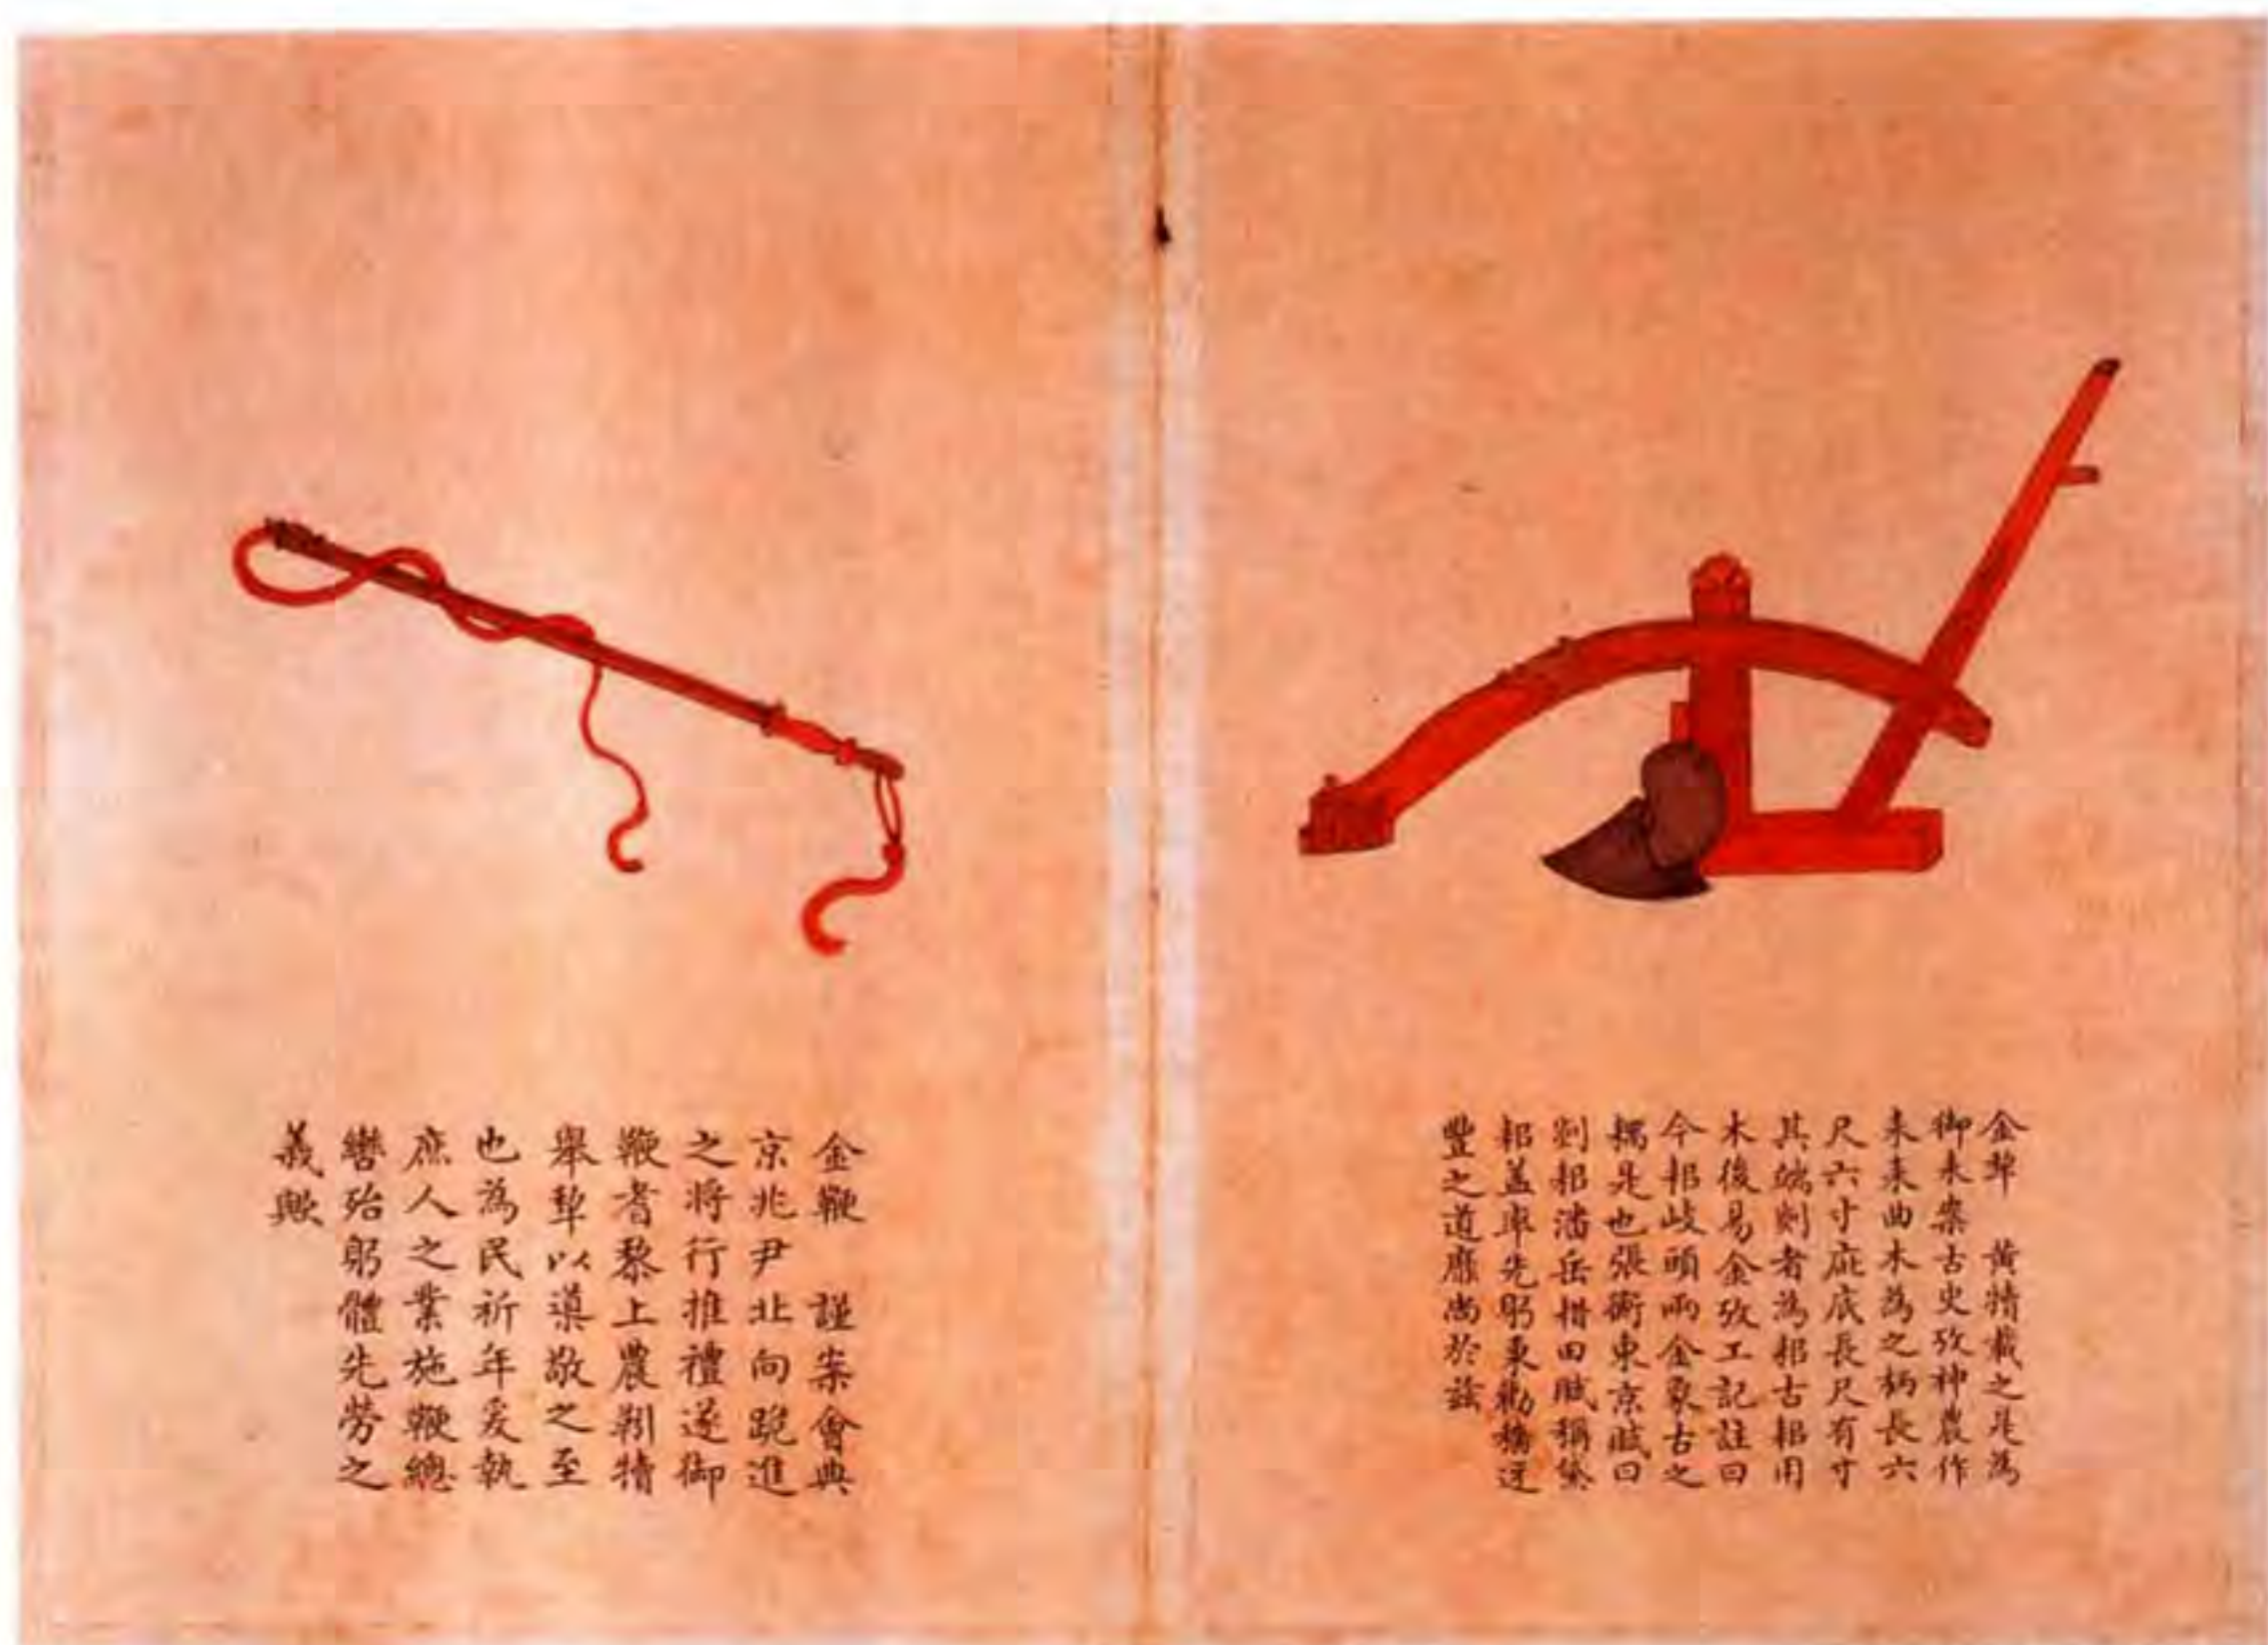 金犂　黃犢載之是為
御耒案古史攷神農作
耒耒曲木為之柄長六
尺六寸庛底長尺有寸
其端剡者為耜古耜用
木後易金攷工記註曰
今耜岐頭兩金象古之
耦是也張衡東京賦曰
剡耜潘岳措田賦稱黛
耜盖率先躬耒勸穡迓
豐之道靡尚於茲
金鞭　謹案會典
京兆尹北向跪進
之將行推禮遂御
鞭者黎上農靷犢
舉犂以導敬之至
也為民祈年爰執
庶人之業施鞭總
轡殆躬體先勞之
義歟